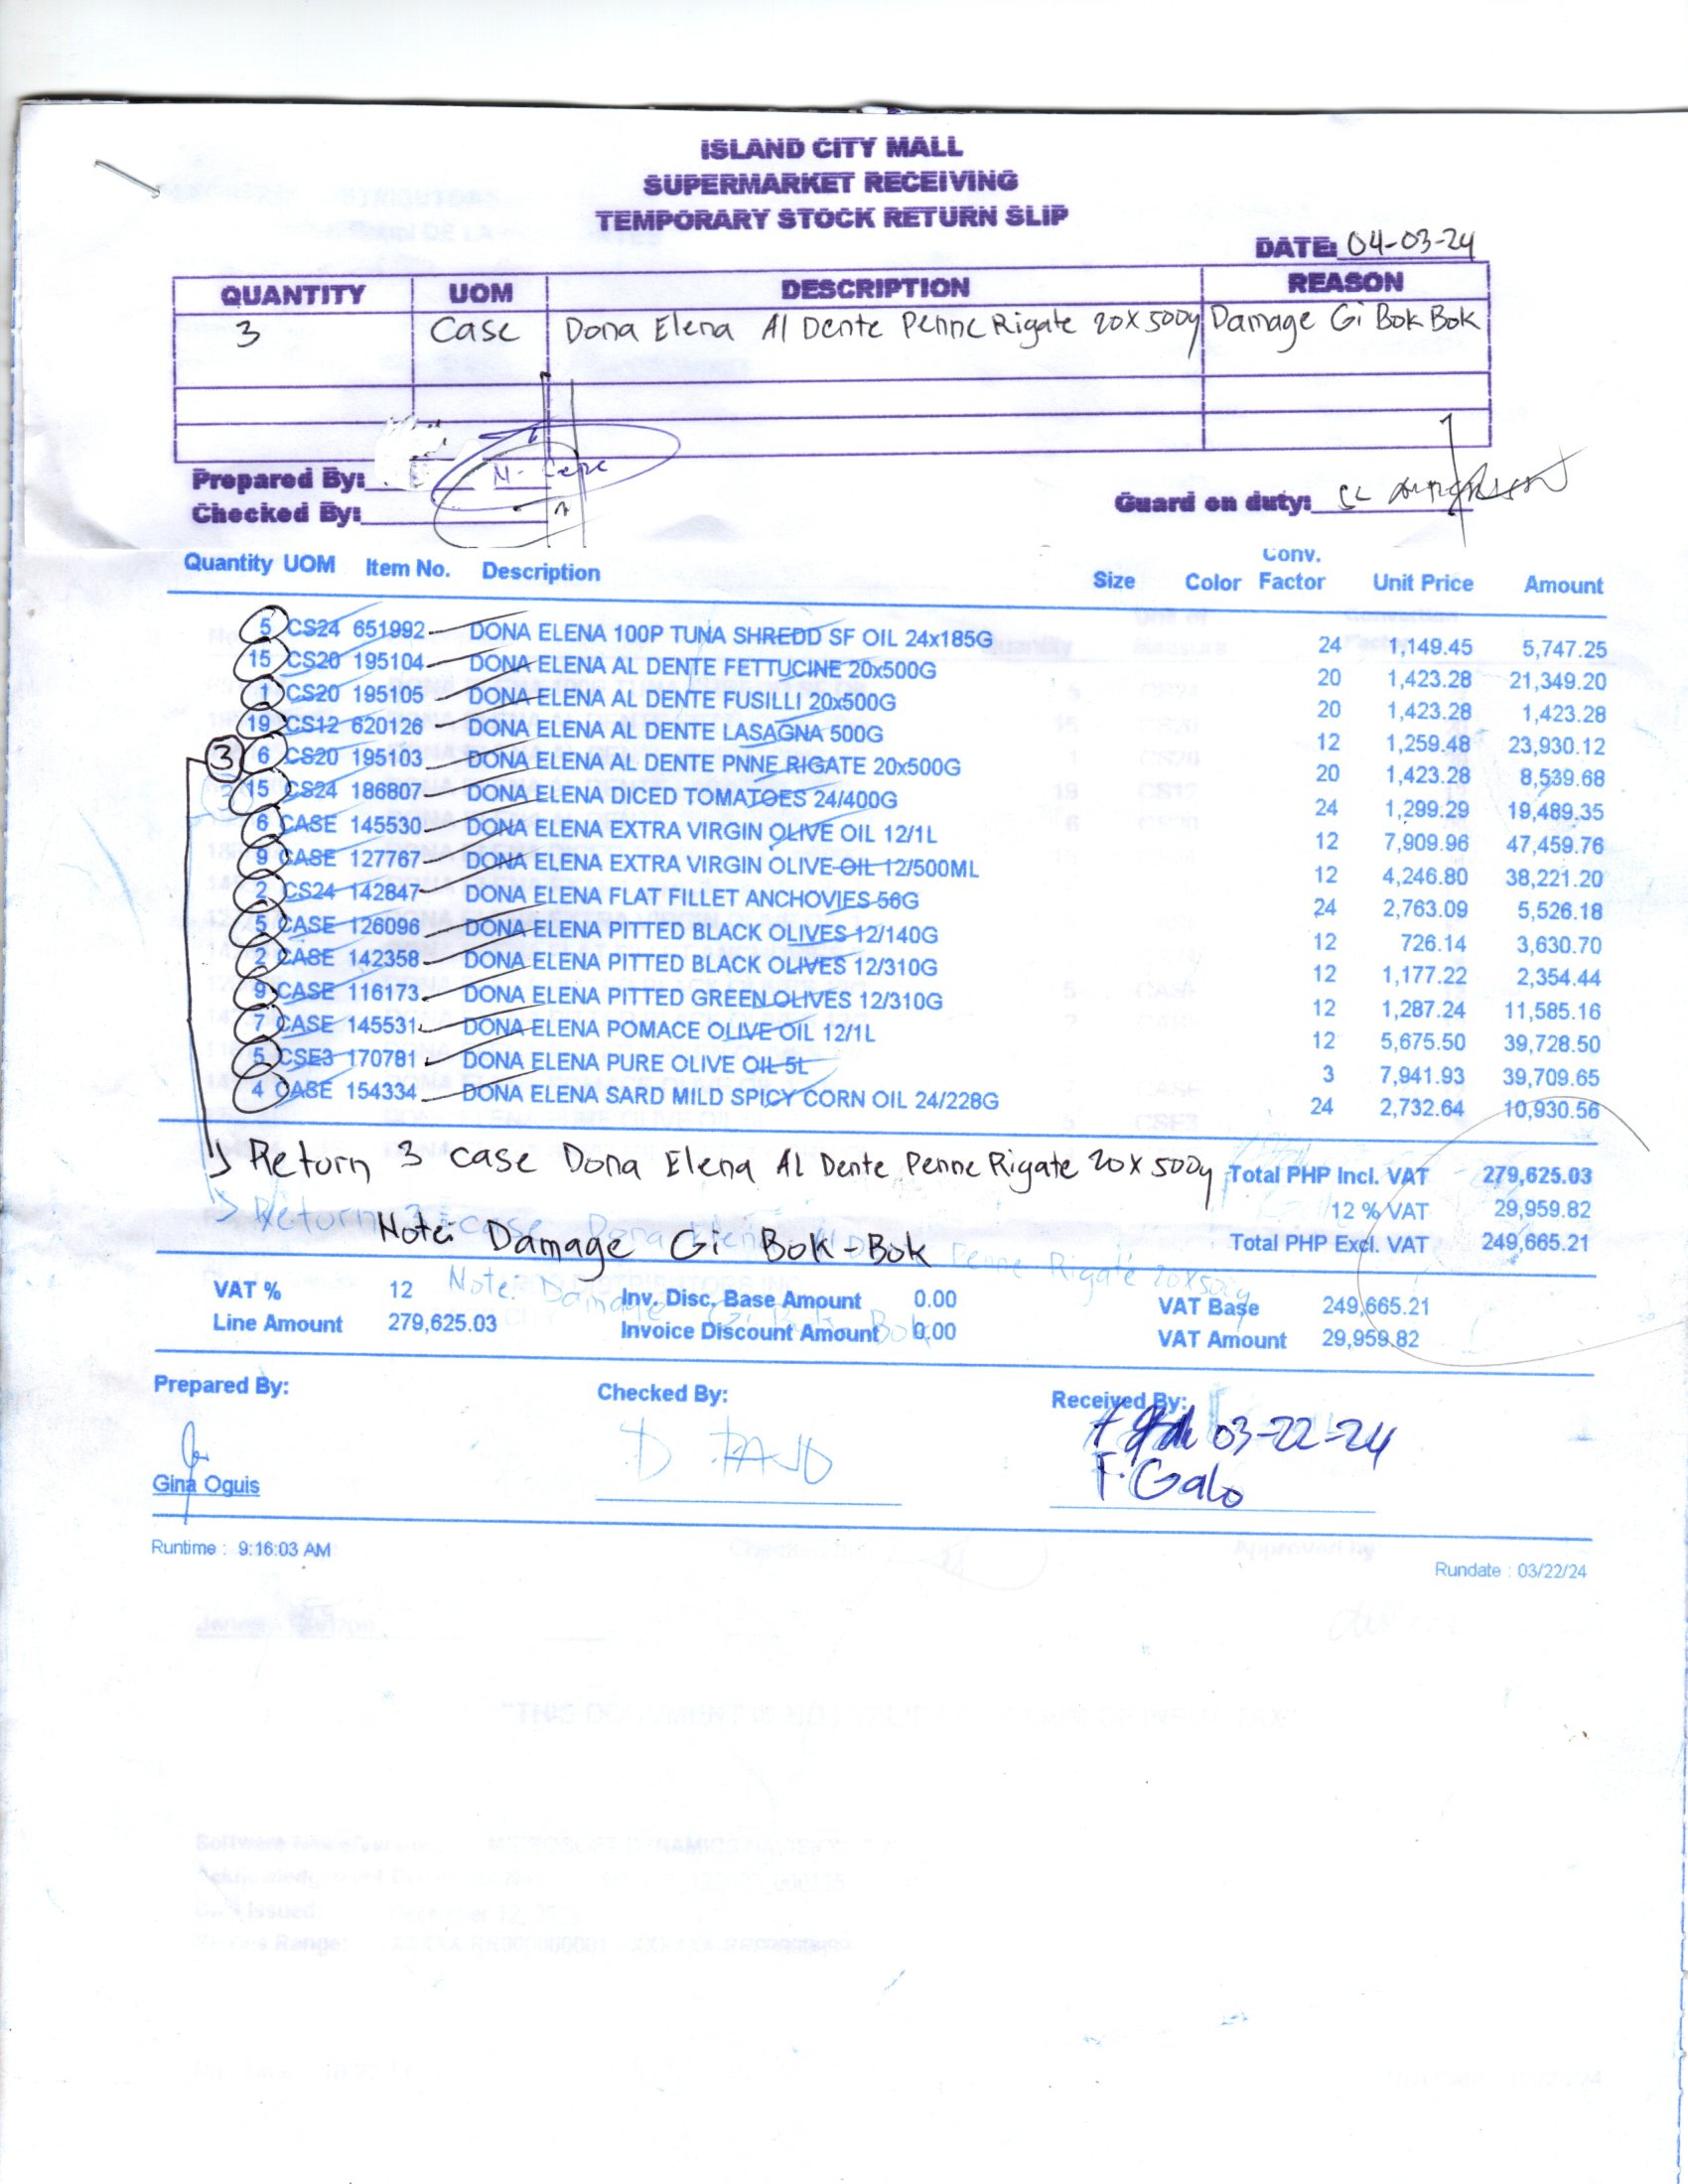 ISLAND CITY MALL
SUPERMARKET RECEIVING
TEMPORARY STOCK RETURN SLIP
DATE: 04-03-24
QUANTITY UOM DESCRIPTION REASON
3 Case Dona Elena Al Dente Penne Rigate 20X500g Damage Gi Bok Bok
Prepared By:
Checked By:
Guard on duty:
Quantity UOM Item No. Description Size Color Conv. Factor Unit Price Amount
5 CS24 651992 DONA ELENA 100P TUNA SHREDD SF OIL 24x185G 24 1,149.45 5,747.25
15 CS20 195104 DONA ELENA AL DENTE FETTUCINE 20x500G 20 1,423.28 21,349.20
1 CS20 195105 DONA ELENA AL DENTE FUSILLI 20x500G 20 1,423.28 1,423.28
19 CS12 620126 DONA ELENA AL DENTE LASAGNA 500G 12 1,259.48 23,930.12
3 6 CS20 195103 DONA ELENA AL DENTE PNNE RIGATE 20x500G 20 1,423.28 8,539.68
15 CS24 186807 DONA ELENA DICED TOMATOES 24/400G 24 1,299.29 19,489.35
6 CASE 145530 DONA ELENA EXTRA VIRGIN OLIVE OIL 12/1L 12 7,909.96 47,459.76
9 CASE 127767 DONA ELENA EXTRA VIRGIN OLIVE OIL 12/500ML 12 4,246.80 38,221.20
2 CS24 142847 DONA ELENA FLAT FILLET ANCHOVIES 56G 24 2,763.09 5,526.18
5 CASE 126096 DONA ELENA PITTED BLACK OLIVES 12/140G 12 726.14 3,630.70
2 CASE 142358 DONA ELENA PITTED BLACK OLIVES 12/310G 12 1,177.22 2,354.44
9 CASE 116173 DONA ELENA PITTED GREEN OLIVES 12/310G 12 1,287.24 11,585.16
7 CASE 145531 DONA ELENA POMACE OLIVE OIL 12/1L 12 5,675.50 39,728.50
5 CSE3 170781 DONA ELENA PURE OLIVE OIL 5L 3 7,941.93 39,709.65
4 CASE 154334 DONA ELENA SARD MILD SPICY CORN OIL 24/228G 24 2,732.64 10,930.56
Return 3 case Dona Elena Al Dente Penne Rigate 20X500g Total PHP Incl. VAT 279,625.03
12 % VAT 29,959.82
Note: Damage Gi Bok-Bok Total PHP Excl. VAT 249,665.21
VAT % 12 Inv. Disc. Base Amount 0.00 VAT Base 249,665.21
Line Amount 279,625.03 Invoice Discount Amount 0.00 VAT Amount 29,959.82
Prepared By: Checked By: Received By:
03-22-24
Gina Oguis F. Galo
Runtime : 9:16:03 AM
Rundate : 03/22/24